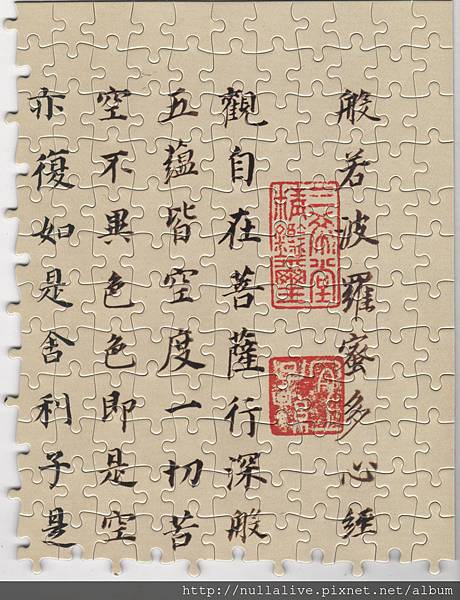 般若波羅蜜多心經
三希堂精鑑璽
宜子孫
觀自在菩薩行深般
五蘊皆空度一切苦
空不異色色即是空
亦復如是舍利子是
http://nullalive.pixnet.net/album